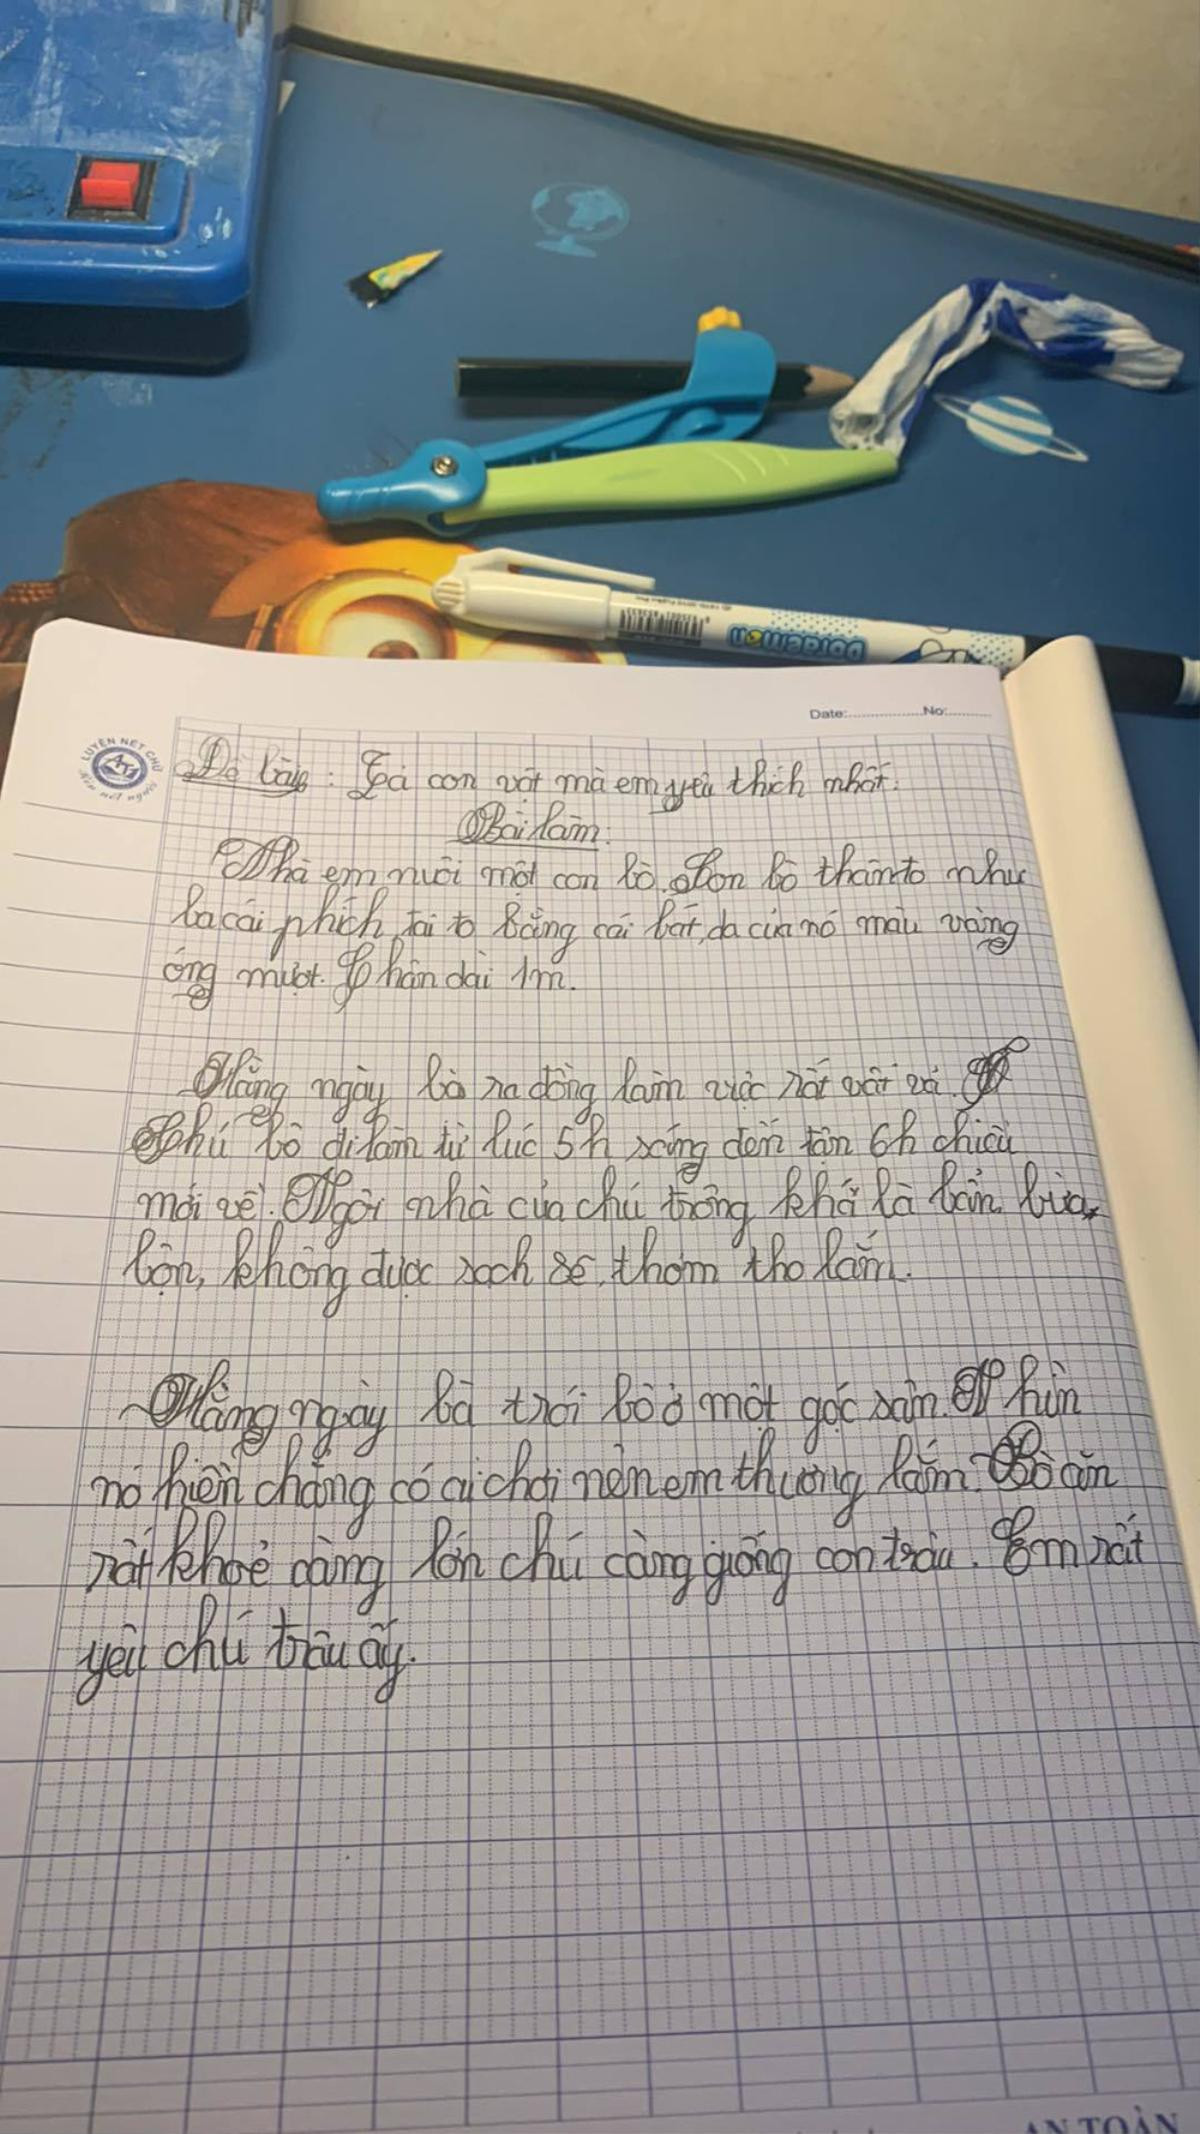 DORAEMON
Date:..................No:..........
LUYỆN NÉT CHỮ
Rèn nết người
Đề bài: Tả con vật mà em yêu thích nhất.
Bài làm:
Nhà em nuôi một con bò. Con bò thân to như
ba cái phích, tai to bằng cái bát, da của nó màu vàng
óng mượt. Chân dài 1m.
Hằng ngày bò ra đồng làm việc rất vất vả.
Chú bò đi làm từ lúc 5h sáng đến tận 6h chiều
mới về. Ngôi nhà của chú trông khá là bẩn, bừa,
bộn, không được sạch sẽ, thơm tho lắm.
Hằng ngày bà trói bò ở một góc sân. Nhìn
nó hiền chẳng có ai chơi nên em thương lắm. Bò ăn
rất khoẻ càng lớn chú càng giống con trâu. Em rất
yêu chú trâu ấy.
AN TOÀN